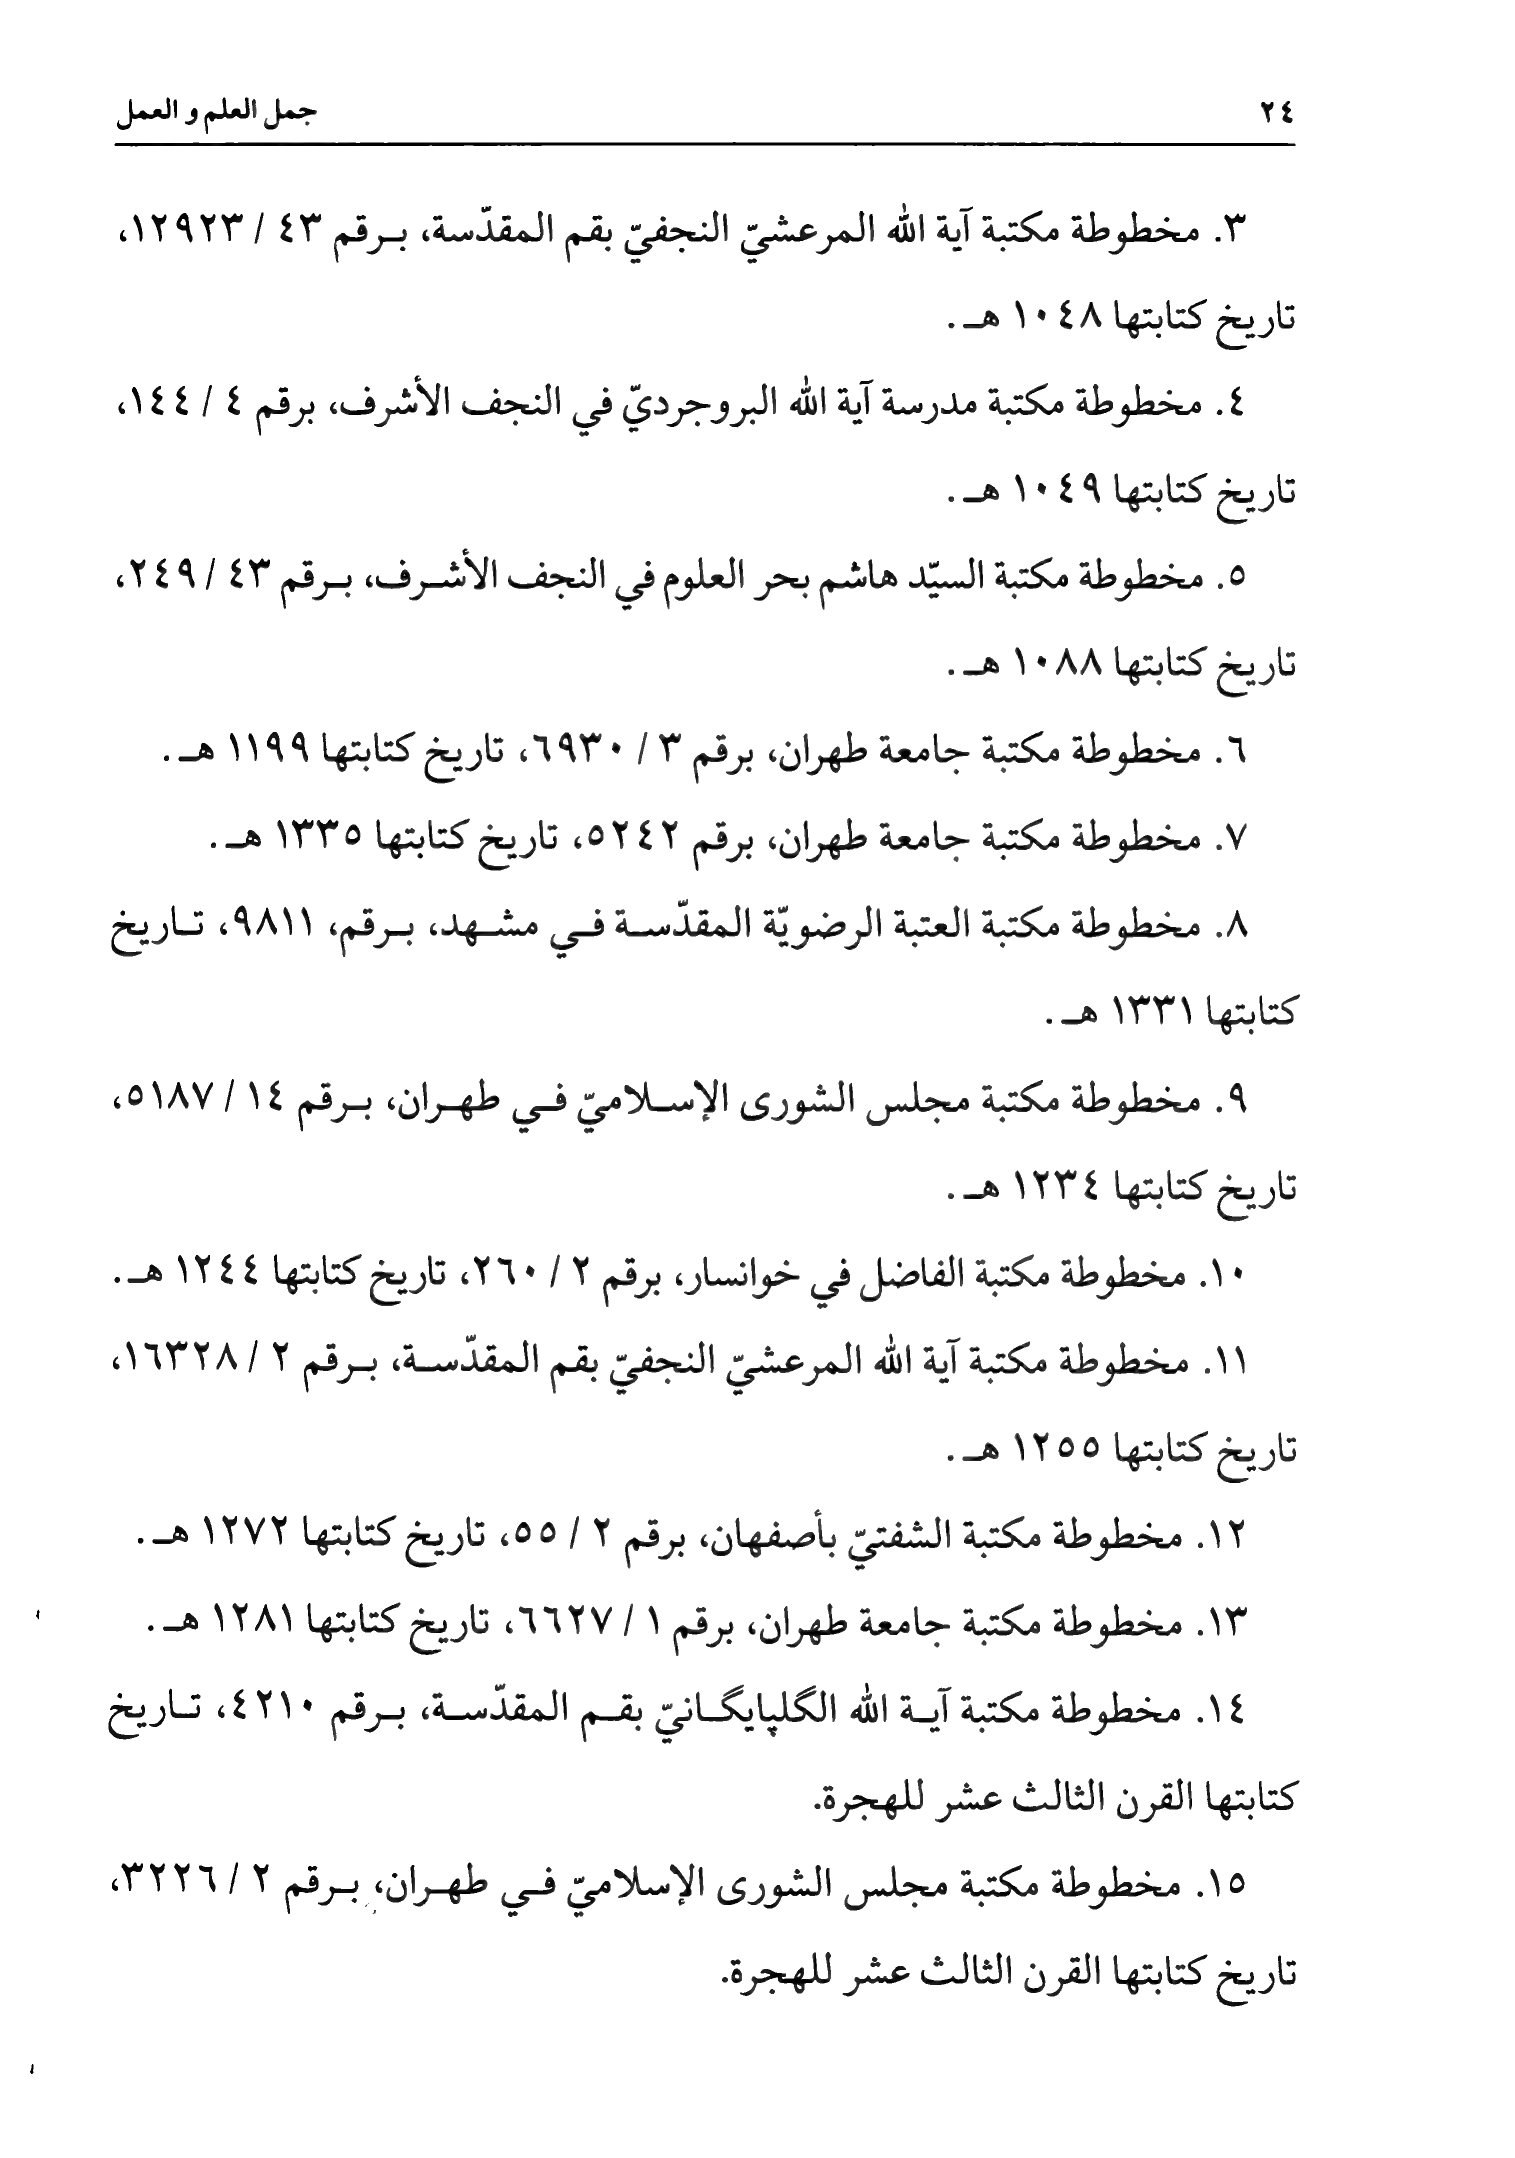 ٢٤
جمل العلم و العمل
٣. مخطوطة مكتبة آية الله المرعشيّ النجفيّ بقم المقدّسة، بـرقم ٤٣ / ١٢٩٢٣،
تاريخ كتابتها ١٠٤٨ هـ .
٤. مخطوطة مكتبة مدرسة آية الله البروجرديّ في النجف الأشرف، برقم ٤ / ١٤٤،
تاريخ كتابتها ١٠٤٩ هـ .
٥. مخطوطة مكتبة السيّد هاشم بحر العلوم في النجف الأشـرف، بـرقم ٤٣ / ٢٤٩،
تاريخ كتابتها ١٠٨٨ هـ .
٦. مخطوطة مكتبة جامعة طهران، برقم ٣ / ٦٩٣٠، تاريخ كتابتها ١١٩٩ هـ .
٧. مخطوطة مكتبة جامعة طهران، برقم ٥٢٤٢، تاريخ كتابتها ١٣٣٥ هـ .
٨. مخطوطة مكتبة العتبة الرضويّة المقدّسـة فـي مشـهد، بـرقم، ٩٨١١، تـاريخ
كتابتها ١٣٣١ هـ .
٩. مخطوطة مكتبة مجلس الشورى الإسـلاميّ فـي طهـران، بـرقم ١٤ / ٥١٨٧،
تاريخ كتابتها ١٢٣٤ هـ .
١٠. مخطوطة مكتبة الفاضل في خوانسار، برقم ٢ / ٢٦٠، تاريخ كتابتها ١٢٤٤ هـ .
١١. مخطوطة مكتبة آية الله المرعشيّ النجفيّ بقم المقدّسـة، بـرقم ٢ / ١٦٣٢٨،
تاريخ كتابتها ١٢٥٥ هـ .
١٢. مخطوطة مكتبة الشفتيّ بأصفهان، برقم ٢ / ٥٥، تاريخ كتابتها ١٢٧٢ هـ .
١٣. مخطوطة مكتبة جامعة طهران، برقم ١ / ٦٦٢٧، تاريخ كتابتها ١٢٨١ هـ .
١٤. مخطوطة مكتبة آيـة الله الگلپايگـانيّ بقـم المقدّسـة، بـرقم ٤٢١٠، تـاريخ
كتابتها القرن الثالث عشر للهجرة.
١٥. مخطوطة مكتبة مجلس الشورى الإسلاميّ فـي طهـران، بـرقم ٢ / ٣٢٢٦،
تاريخ كتابتها القرن الثالث عشر للهجرة.